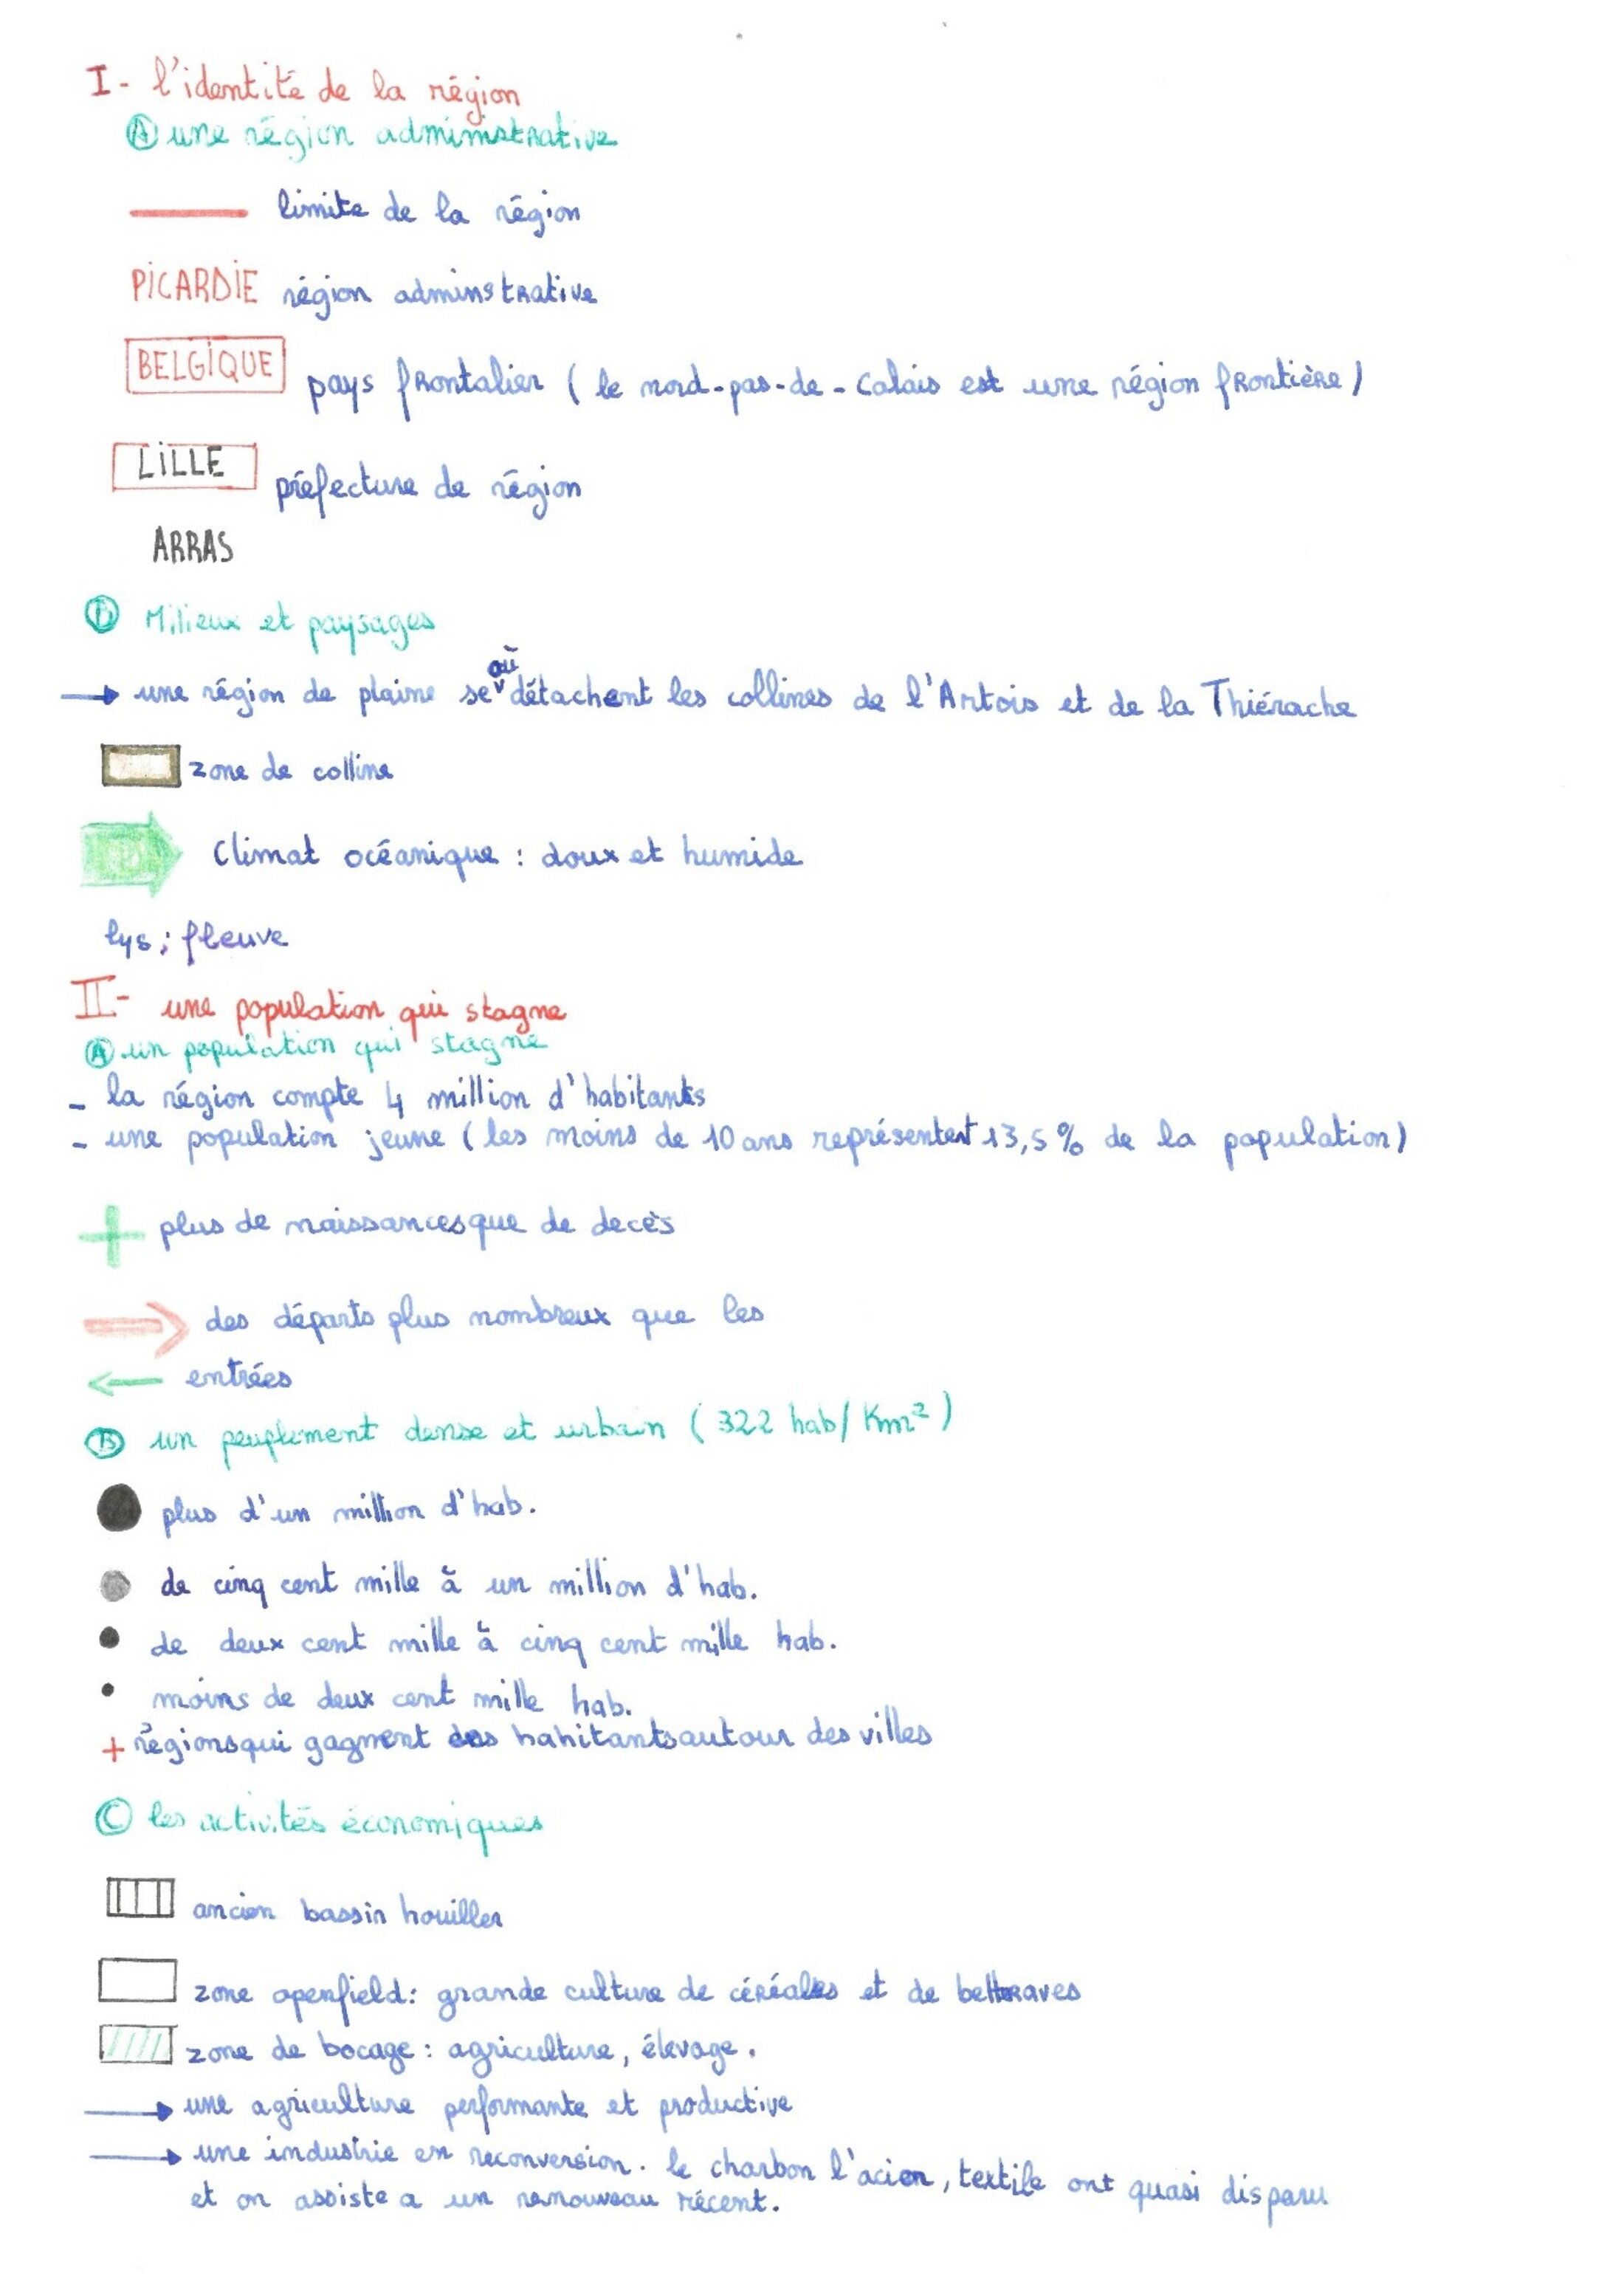 I- l'identité de la région
Ⓐ une région administrative
limite de la région
PICARDIE région adminstrative
BELGIQUE pays frontalier ( le nord-pas-de-Calais est une région frontière )
LILLE préfecture de région
ARRAS
Ⓑ Milieux et paysages
→ une région de plaine se où détachent les collines de l'Artois et de la Thiérache
zone de colline
Climat océanique : doux et humide
lys ; fleuve
II- une population qui stagne
Ⓐ un population qui stagne
- la région compte 4 million d'habitants
- une population jeune ( les moins de 10 ans représentent 13,5 % de la population )
+ plus de naissances que de decès
→ des départs plus nombreux que les
← entrées
Ⓑ un peuplement dense et urbain ( 322 hab/ Km² )
plus d'un million d'hab.
de cinq cent mille à un million d'hab.
de deux cent mille à cinq cent mille hab.
moins de deux cent mille hab.
+ régions qui gagnent des habitants autour des villes
Ⓒ les activités économiques
ancien bassin houiller
zone openfield : grande culture de céréales et de betteraves
zone de bocage : agriculture, élevage.
→ une agriculture performante et productive
→ une industrie en reconversion. le charbon l'acier, textile ont quasi disparu
et on assiste a un renouveau récent.